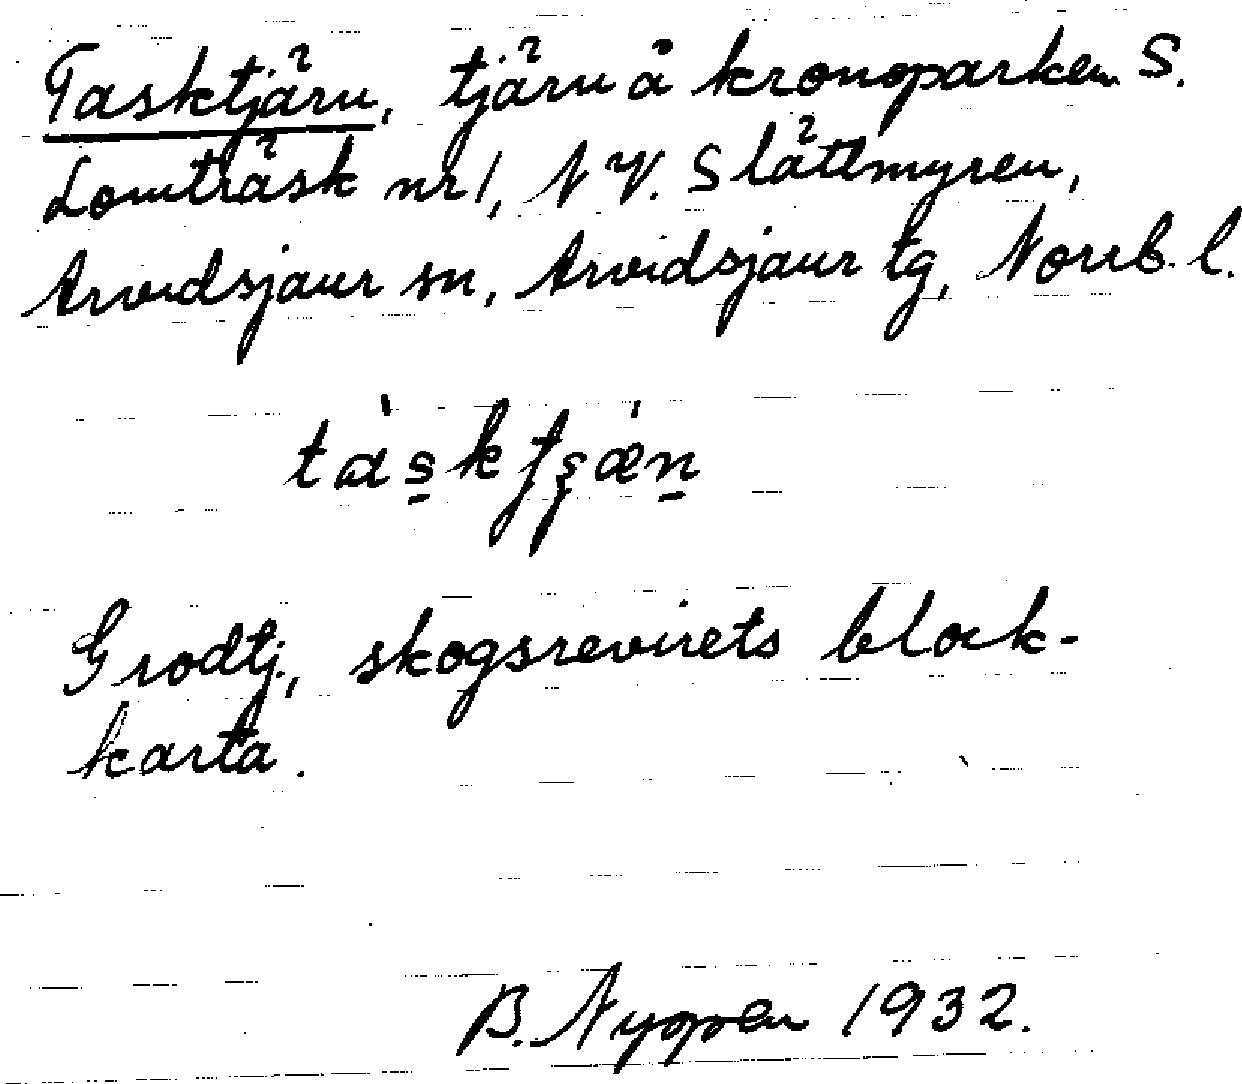 Tasktjärn, tjärn å kronoparken S.
Lomträsk nr 1, N V. Slättmyren,
Arvidsjaur sn, Arvidsjaur tg, Norrb. l.
Grodtj., skogsrevirets block-
karta.
B. Nyman 1932.